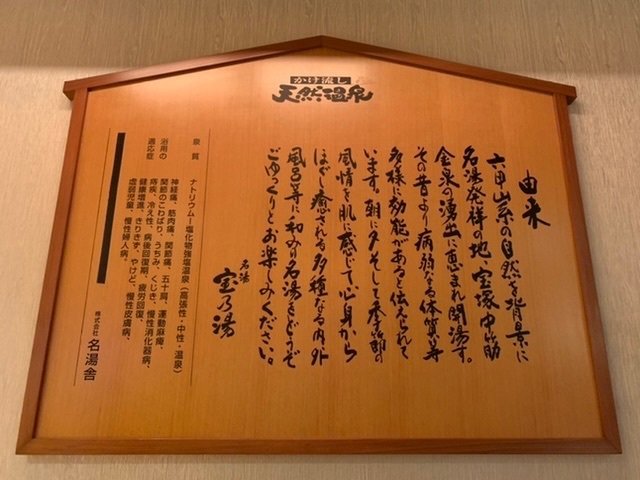 かけ流し
天然温泉
由来
六甲山系の自然を背景に
名湯発祥の地、宝塚中筋
金泉の湧出に恵まれ開湯す。
その昔より病弱なる体質等
多様に効能があると伝えられて
います。朝に夕そして季節の
風情を肌に感じて心身から
ほぐし癒される多種なる内外
風呂等に和み名湯をどうぞ
ごゆっくりとお楽しみください。
名湯
宝乃湯
泉質 ナトリウム-塩化物強塩温泉(高張性・中性・温泉)
浴用の
適応症
神経痛、筋肉痛、関節痛、五十肩、運動麻痺、
関節のこわばり、うちみ、くじき、慢性消化器病、
痔疾、冷え性、病後回復期、疲労回復、
健康増進、きりきず、やけど、慢性皮膚病、
虚弱児童、慢性婦人病、
株式会社 名湯舎